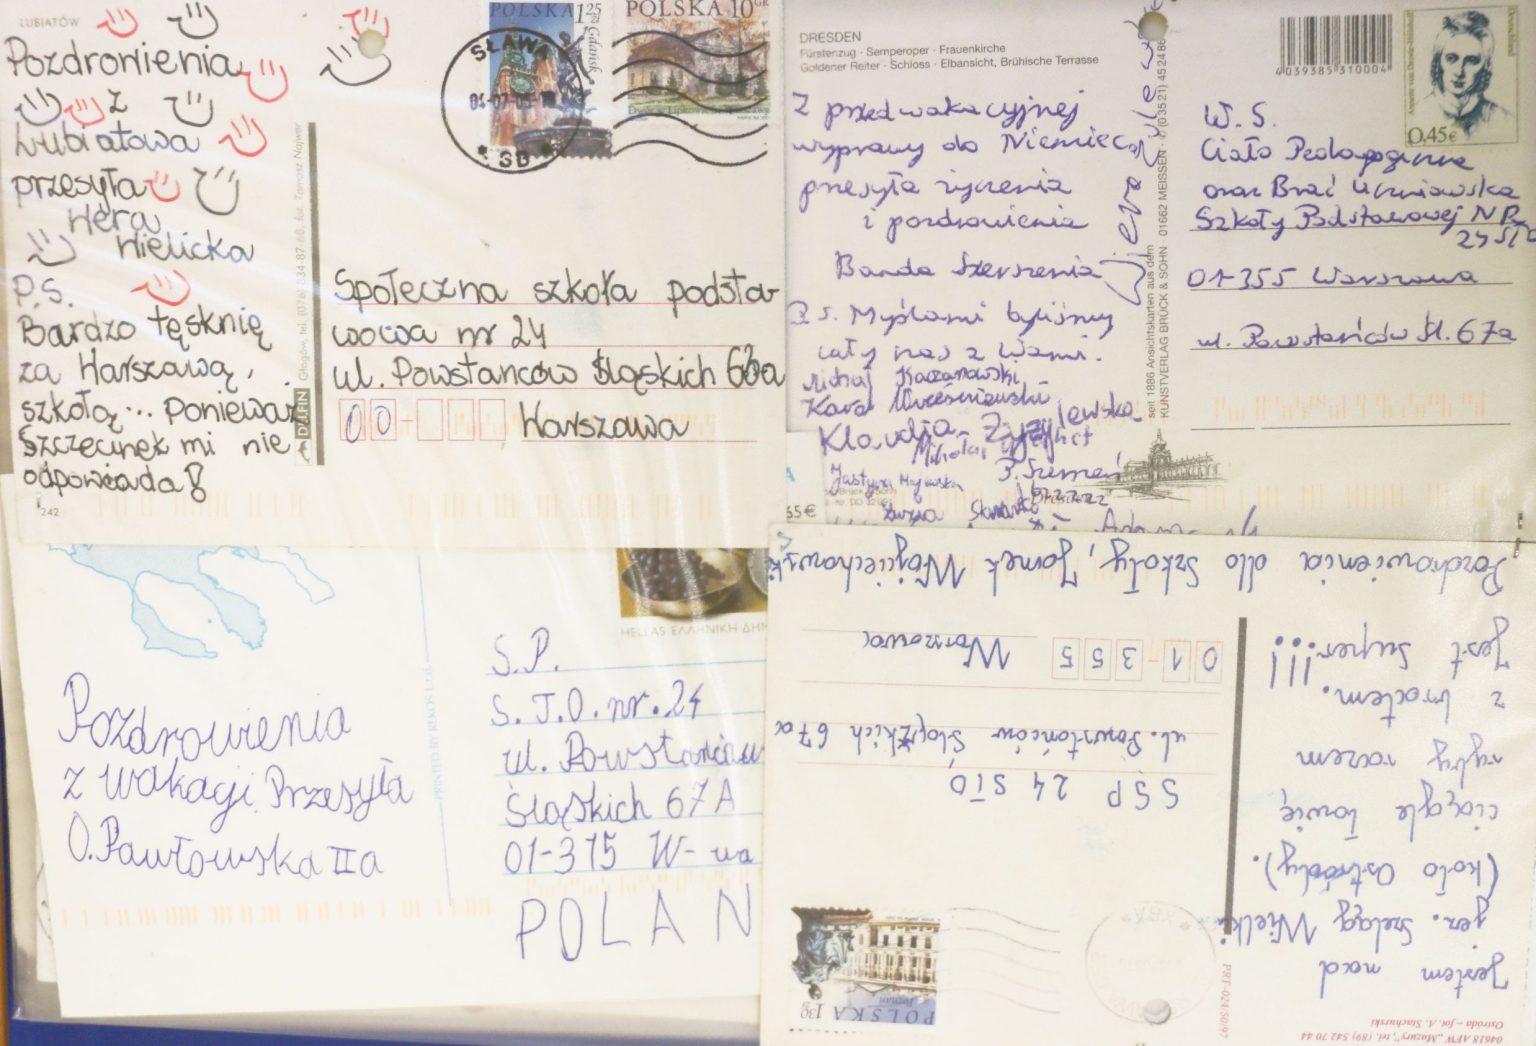 LUBIATÓW
Pozdrowienia
z
Lubiatowa
przesyła
Wera
Wielicka
P.S.
Bardzo tęsknię
za Warszawą,
szkołą... ponieważ
Szczecinek mi nie
odpowiada!
242
DELFIN
Głogów, tel. (076) 834-87-68, fot. Tomasz Najwer
POLSKA 1 25 zł
Gdańsk
POLSKA 10 GR
SŁAWA
Społeczna szkoła podsta-
wowa nr 24
ul. Powstańców Śląskich 63a
00- Warszawa
DRESDEN
Fürstenzug · Semperoper · Frauenkirche
Goldener Reiter · Schloss · Elbansicht, Brühlsche Terrasse
4 039385 310004
0,45€
Z przedwakacyjnej
wyprawy do Niemiec
przesyła życzenia
i pozdrowienia
Banda Szerszenia
P.S. Myślami byliśmy
cały czas z Wami.
Michał Kaczanowski
Karol Wrześniewski
Klaudia Zyzylewska
Mikołaj
Justyna Majewska
P. Szerszeń
Bzzzzz
Dresden
55€
seit 1886 Ansichtskarten aus dem
KUNSTVERLAG BRÜCK & SOHN · 01662 MEISSEN · (03521) 452486
W. S.
Ciało Pedagogiczne
oraz Brać Uczniowska
Szkoły Podstawowej NR
24 STO
01-355 Warszawa
ul. Powstańców Śl. 67a
HELLAS ΕΛΛΗΝΙΚΗ ΔΗΜ
Pozdrowienia
z wakacji Przesyła
O. Pawłowska IIa
S.P.
S.T.O. nr. 24
ul. Powstańców
Śląskich 67A
01-315 W-wa
POLAN
04618 AFW „Mazury”, tel. (89) 542 70 44
Ostróda – fot. A. Stachurski
PRT-024/50/97
Jestem nad
jez. Szeląg Wielki
(koło Ostródy).
ciągle łowię
ryby razem
z bratem.
Jest super!!!
Pozdrowienia dla szkoły, Jomek Wojciechowski
POLSKA 1 30 zł
Poznań
SSP 24 STO
ul. Powstańców Śląskich 67a
01-355 Warszawa